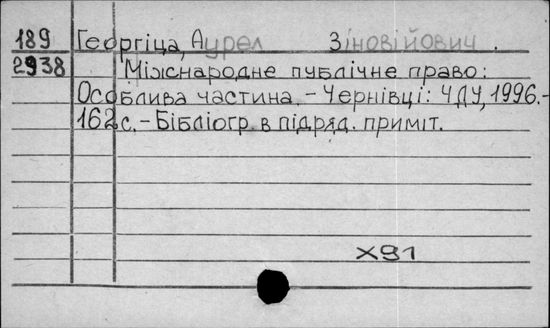 189 Георгіца, Аурел Зіновійович.
2938 Міжнародне публічне право:
Особлива частина. – Чернівці: ЧДУ, 1996. –
162 с. – Бібліогр. в підряд. приміт.
X91